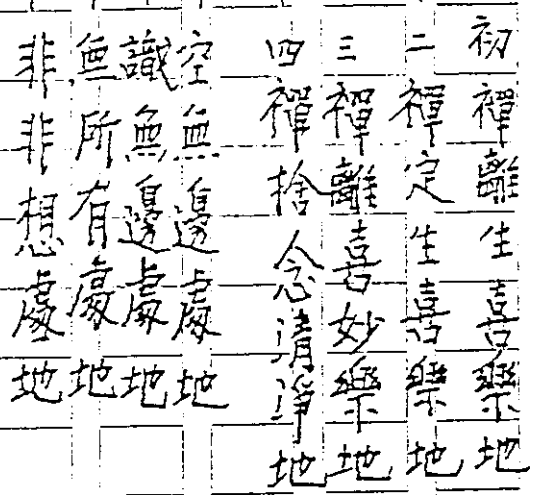 初禪離生喜樂地
二禪定生喜樂地
三禪離喜妙樂地
四禪捨念清淨地
空無邊處地
識無邊處地
無所有處地
非非想處地